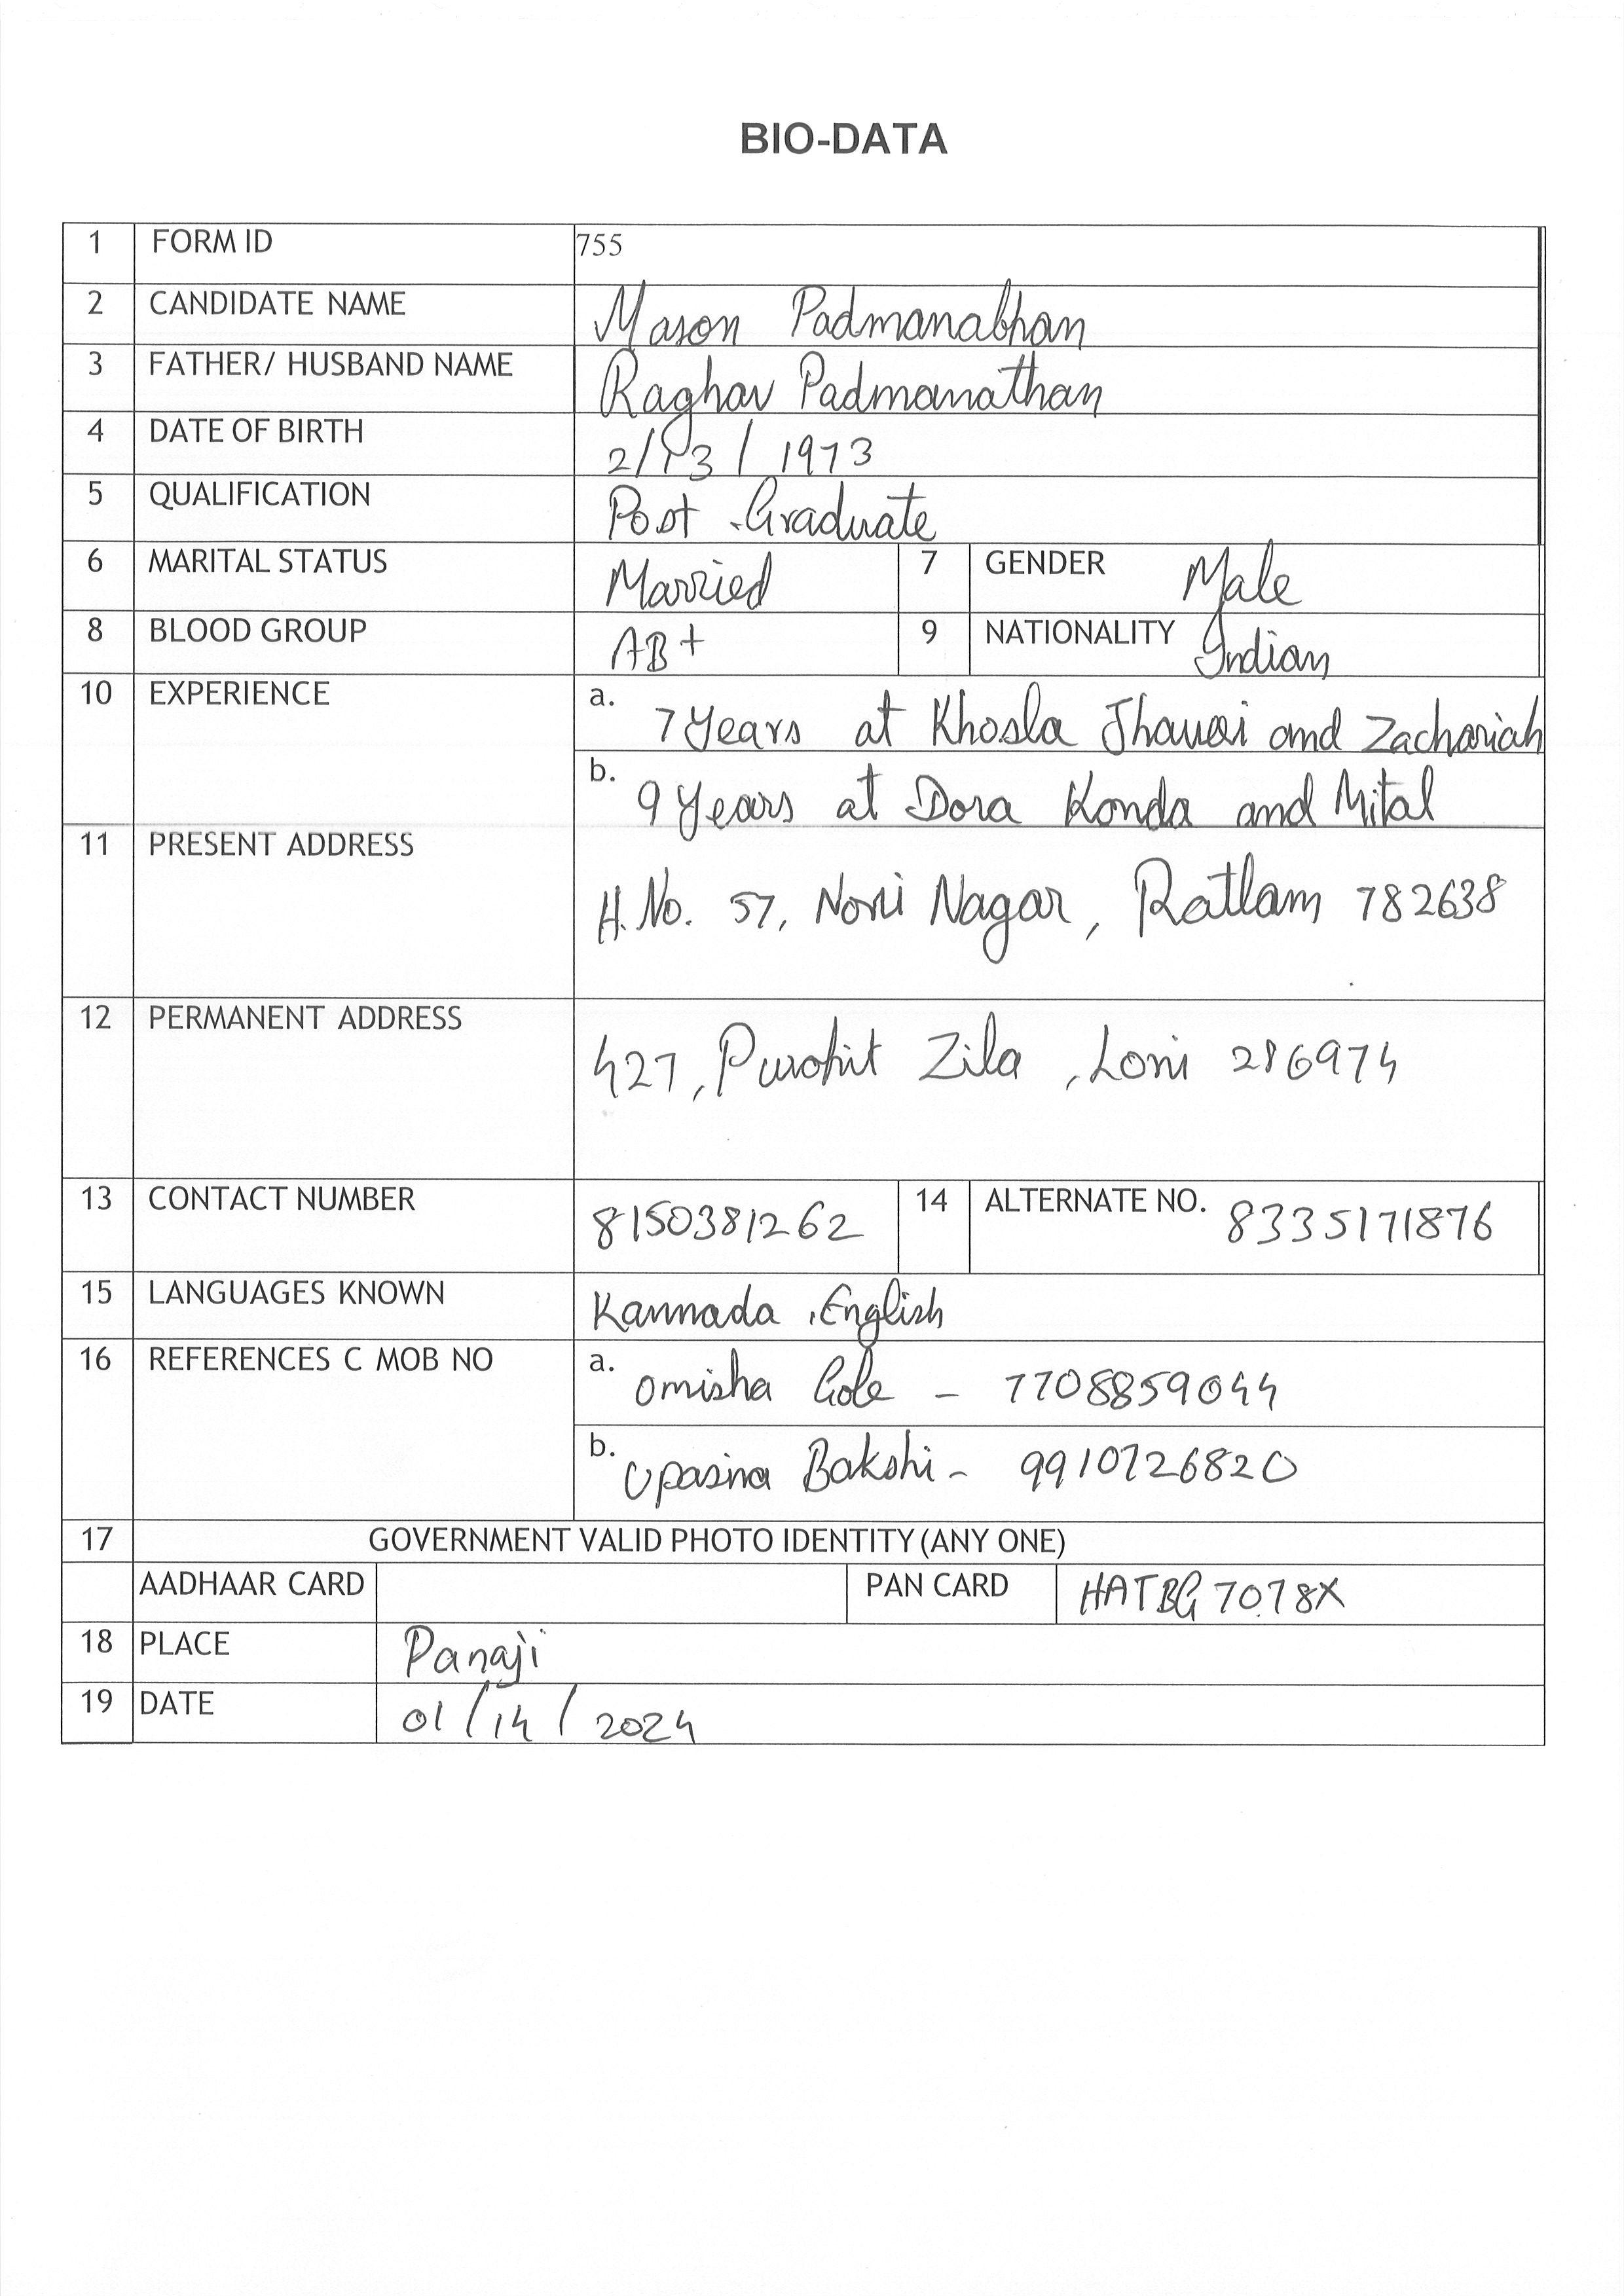 BIO-DATA
1 FORM ID 755
2 CANDIDATE NAME Mason Padmanabhan
3 FATHER/ HUSBAND NAME Raghav Padmanathan
4 DATE OF BIRTH 2/13/1973
5 QUALIFICATION Post Graduate
6 MARITAL STATUS Married 7 GENDER Male
8 BLOOD GROUP AB+ 9 NATIONALITY Indian
10 EXPERIENCE a. 7 Years at Khosla and Zachariah
b. 9 Years at Dora Konda and Mital
11 PRESENT ADDRESS
H.No. 57, Nagar, Ratlam 782638
12 PERMANENT ADDRESS
427, Purohit Zila, Loni 286974
13 CONTACT NUMBER 8150381262 14 ALTERNATE NO. 8335171876
15 LANGUAGES KNOWN Kannada, English
16 REFERENCES C MOB NO a. Omisha Gole - 7708859044
b. Upasna Bakshi - 9910726820
17 GOVERNMENT VALID PHOTO IDENTITY (ANY ONE)
AADHAAR CARD PAN CARD HATBG7078X
18 PLACE Panaji
19 DATE 01/14/2024